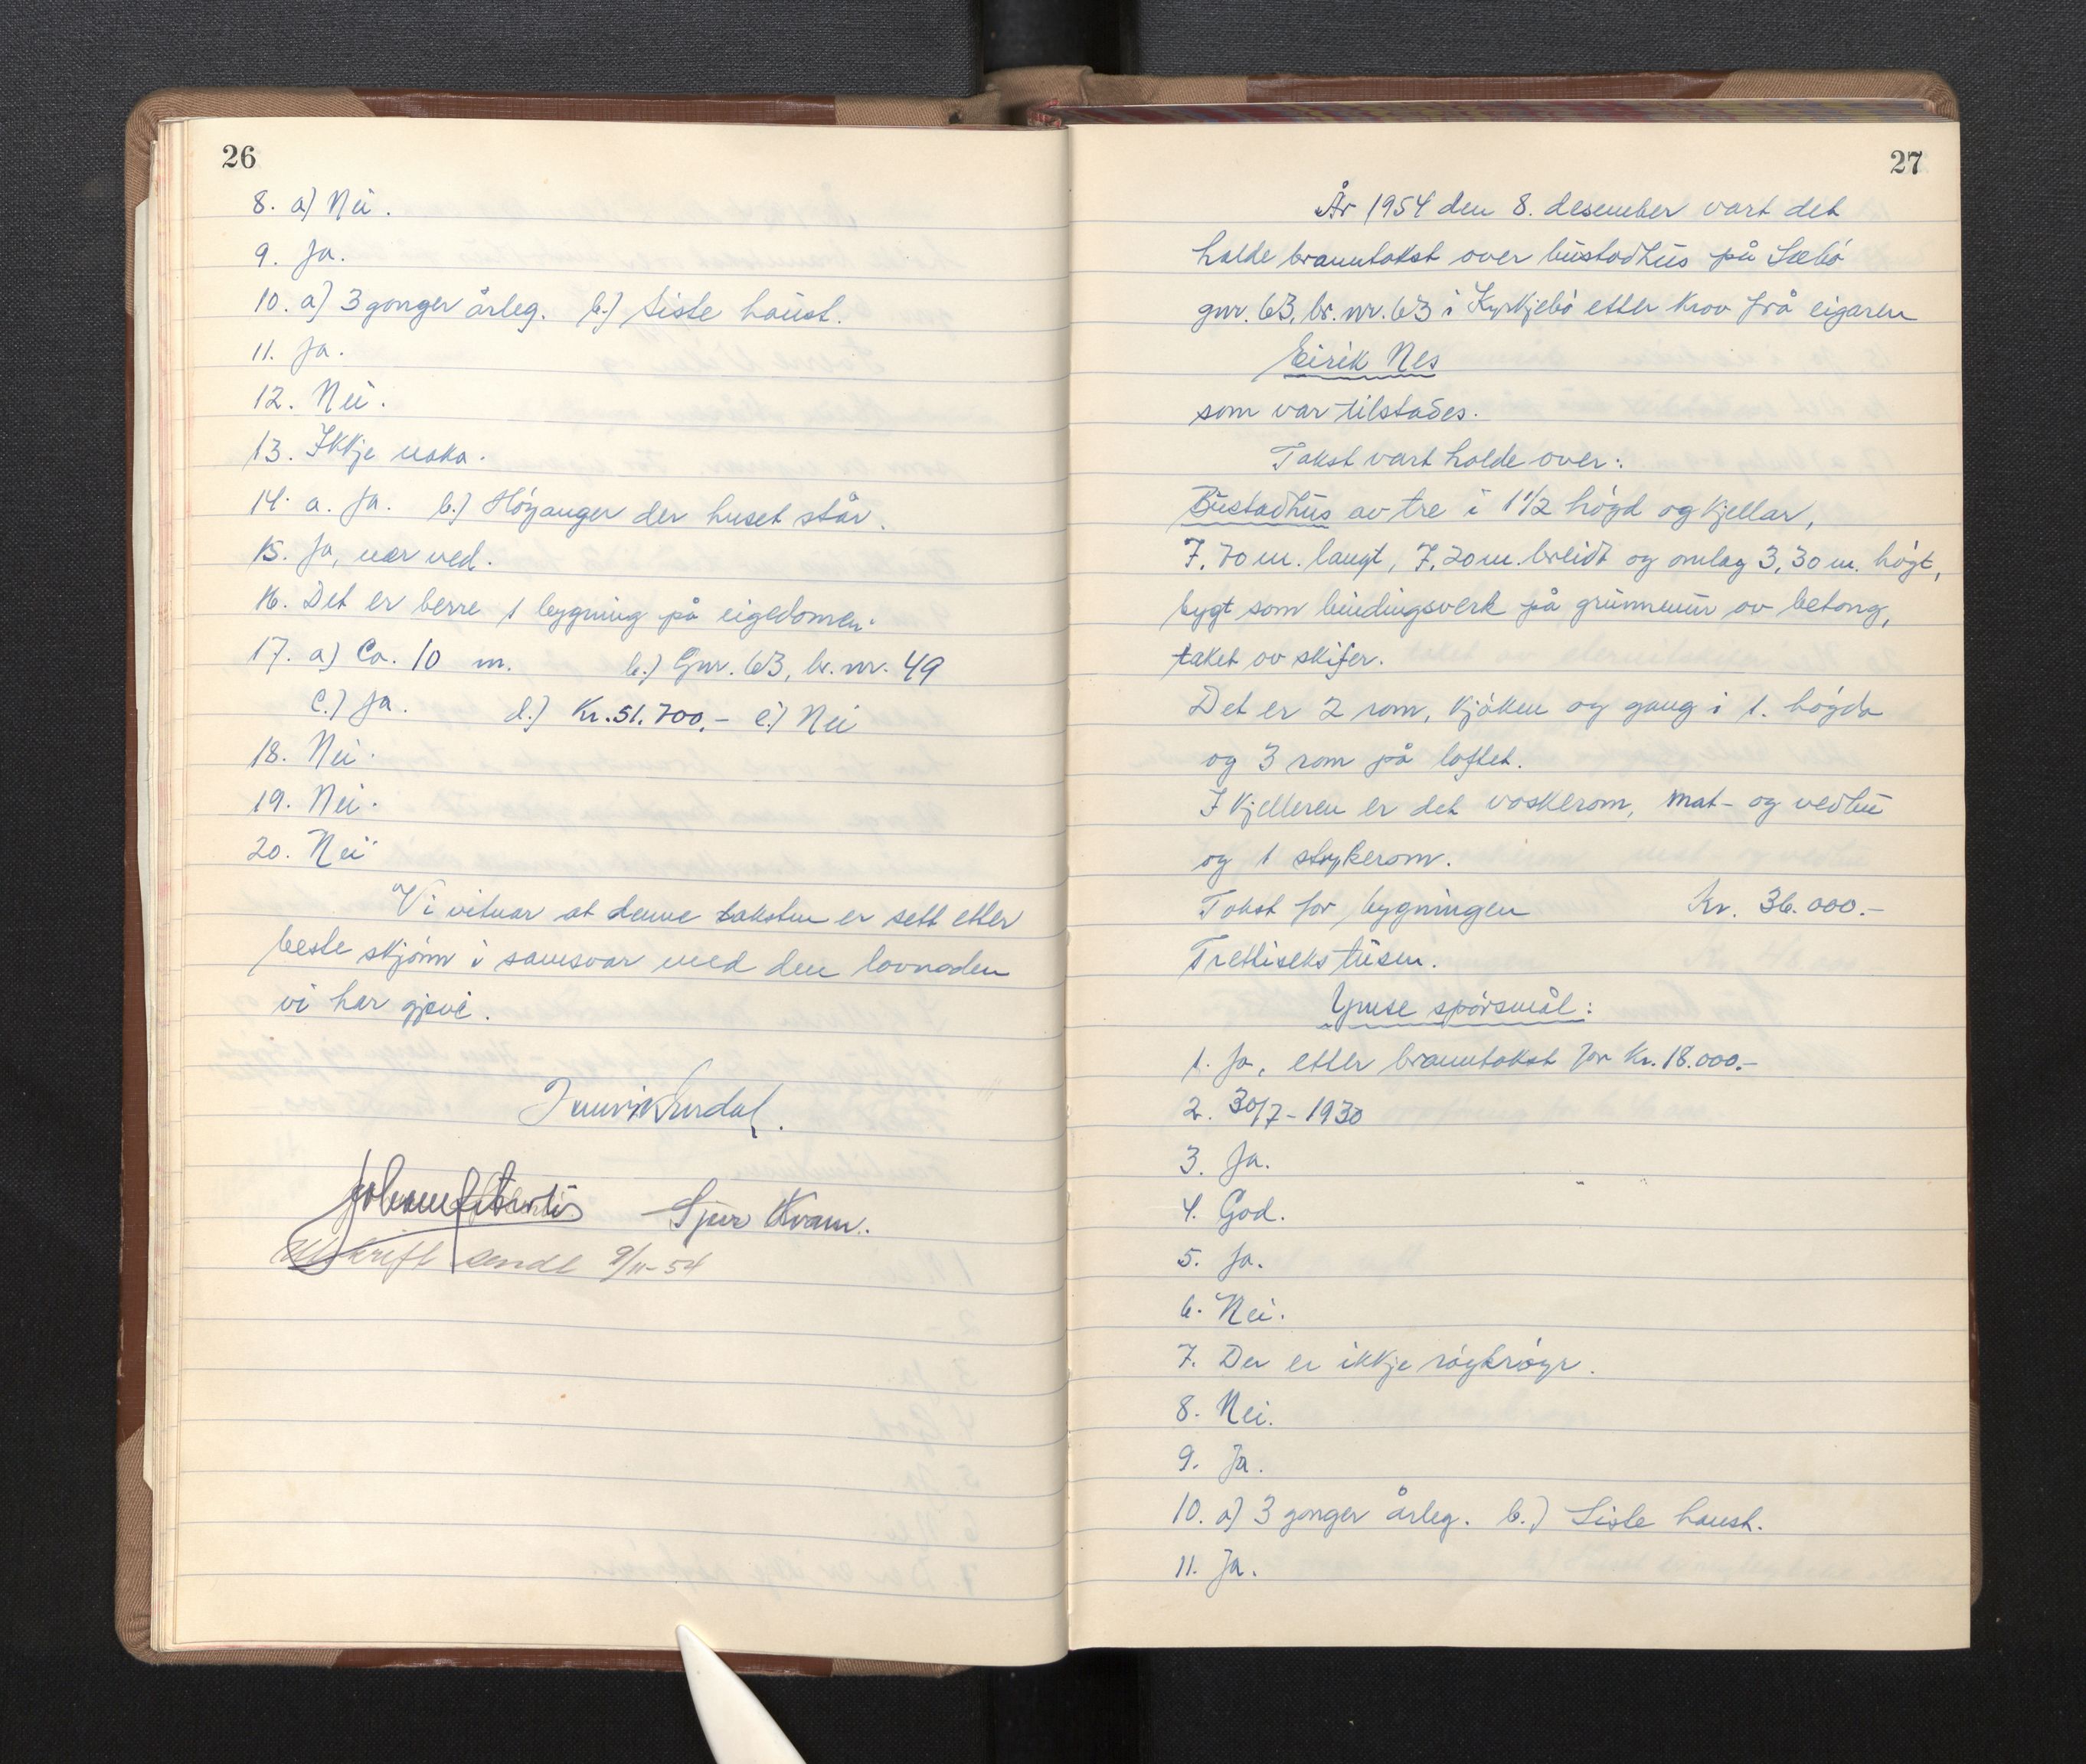 26
8. a) Nei.
9. Ja.
10. a) 3 gonger årleg. b.) Siste haust.
11. Ja.
12. Nei.
13. Ikkje uaka.
14. a. Ja. b.) Höyanger der huset står.
15. Ja, nær ved.
16. Det er berre 1 bygning på eigedomen.
17. a) Ca. 10 m. b.) Gnr. 63, br. nr. 49
c.) Ja. d.) Kr. 51.700.- e.) Nei
18. Nei.
19. Nei.
20. Nei
Vi vitnar at denne taksten er sett etter
beste skjönn i samsvar med den lovnaden
vi har gjeve.
Sjur Kvam.
Utskrift sendt 9/11-54
27
År 1954 den 8. desember vart det
halde branntakst over bustadhus på Sæbö
gnr. 63, br. nr. 63 i Kyrkjebö etter krav frå eigaren
Eirik Nes
som var tilstades.
Takst vart halde over:
Bustadhus av tre i 1 1/2 högd og kjellar,
7,70 m. langt, 7,20 m. breidt og omlag 3,30 m. högt,
bygt som bindingsverk på grunnmur av betong,
taket av skifer.
Det er 2 rom, kjöken og gang i 1. högda
og 3 rom på loftet.
I kjelleren er det vaskerom, mat- og vedbu
og 1 strykerom.
Takst for bygningen Kr. 36.000.-
Trettiseks tusen.
Ymse spörsmål:
1. Ja, etter branntakst for Kr. 18.000.-
2. 30/7-1930
3. Ja.
4. God.
5. Ja.
6. Nei.
7. Der er ikkje röykröyr.
8. Nei.
9. Ja.
10. a) 3 gonger årleg. b.) Siste haust.
11. Ja.